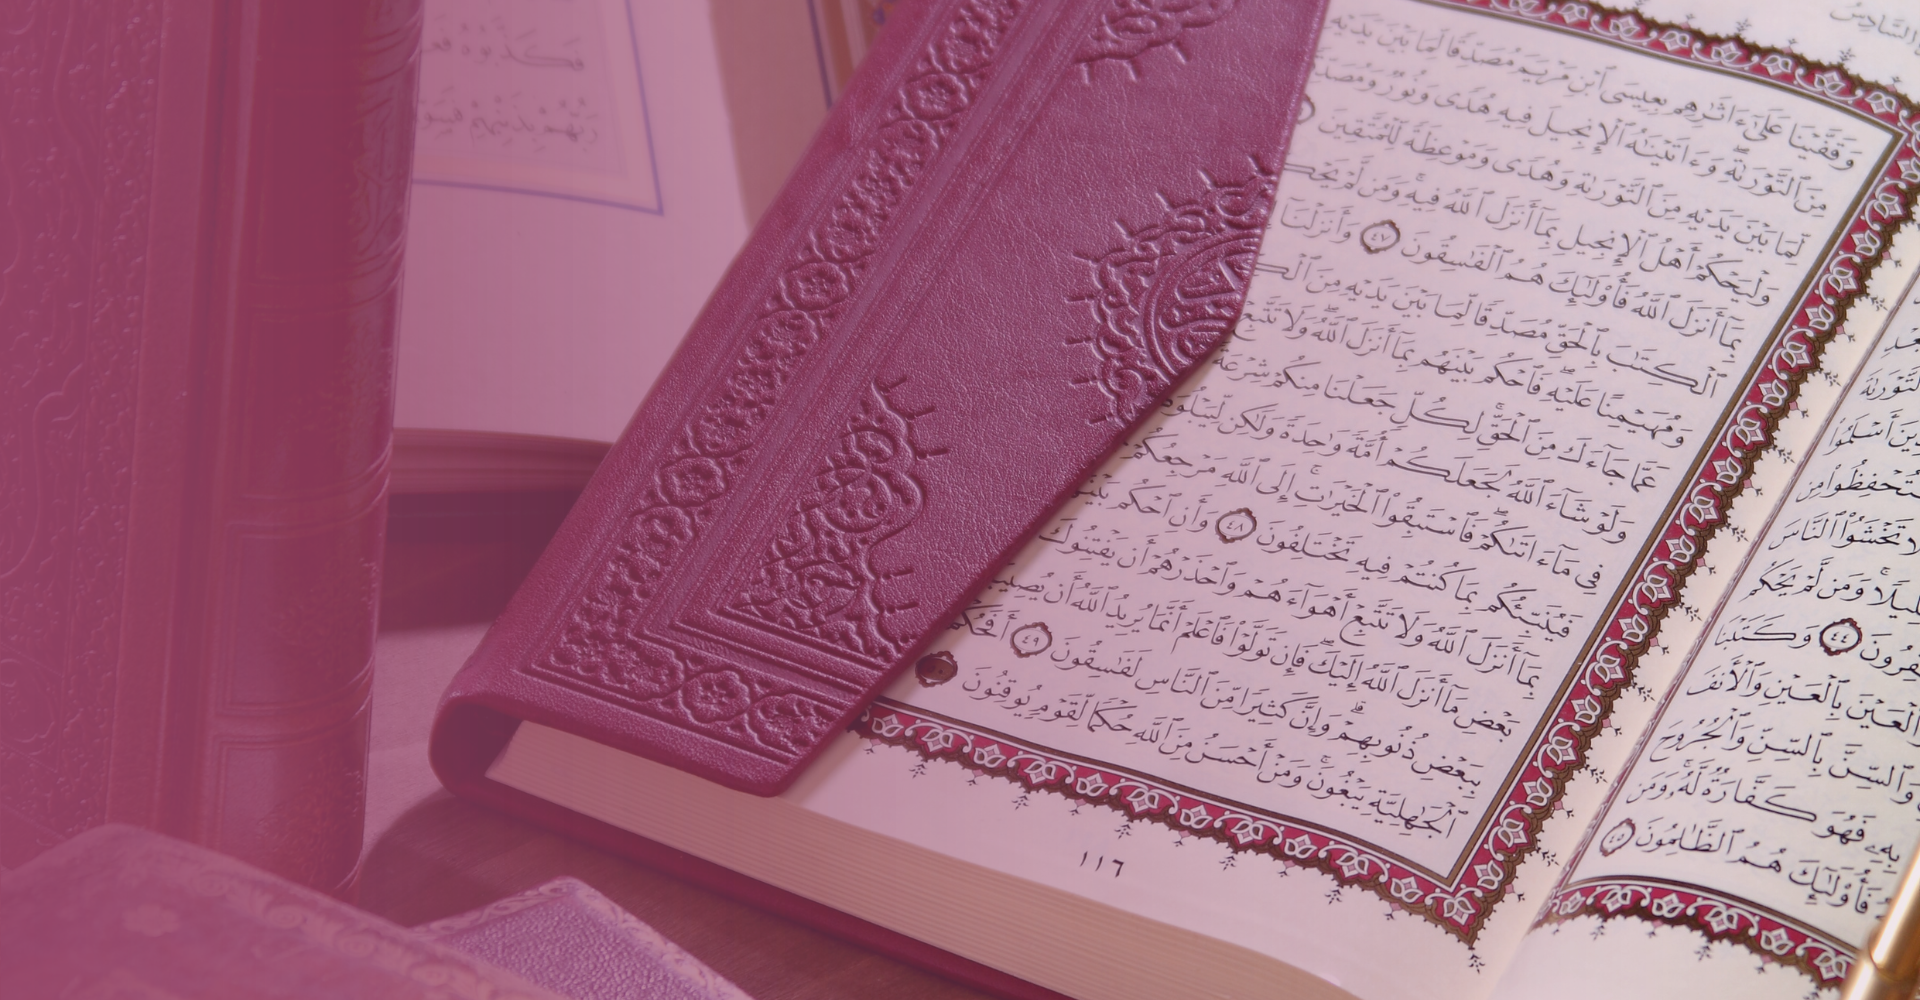 وَقَفَّيْنَا عَلَىٰٓ ءَاثَٰرِهِم بِعِيسَى ٱبْنِ مَرْيَمَ مُصَدِّقًا لِّمَا بَيْنَ يَدَيْهِ
مِنَ ٱلتَّوْرَىٰةِ ۖ وَءَاتَيْنَٰهُ ٱلْإِنجِيلَ فِيهِ هُدًى وَنُورٌ
لِّمَا بَيْنَ يَدَيْهِ مِنَ ٱلتَّوْرَىٰةِ وَهُدًى وَمَوْعِظَةً لِّلْمُتَّقِينَ
وَلْيَحْكُمْ أَهْلُ ٱلْإِنجِيلِ بِمَآ أَنزَلَ ٱللَّهُ فِيهِ ۚ وَمَن لَّمْ
بِمَآ أَنزَلَ ٱللَّهُ فَأُو۟لَٰٓئِكَ هُمُ ٱلْفَٰسِقُونَ ٤٧ وَأَنزَلْنَآ
ٱلْكِتَٰبَ بِٱلْحَقِّ مُصَدِّقًا لِّمَا بَيْنَ يَدَيْهِ مِنَ
وَمُهَيْمِنًا عَلَيْهِ ۖ فَٱحْكُم بَيْنَهُم بِمَآ أَنزَلَ ٱللَّهُ ۖ وَلَا تَتَّبِعْ
عَمَّا جَآءَكَ مِنَ ٱلْحَقِّ ۚ لِكُلٍّ جَعَلْنَا مِنكُمْ شِرْعَةً
وَلَوْ شَآءَ ٱللَّهُ لَجَعَلَكُمْ أُمَّةً وَٰحِدَةً وَلَٰكِن
فِى مَآ ءَاتَىٰكُمْ ۖ فَٱسْتَبِقُوا۟ ٱلْخَيْرَٰتِ ۚ إِلَى ٱللَّهِ مَرْجِعُكُمْ
فَيُنَبِّئُكُم بِمَا كُنتُمْ فِيهِ تَخْتَلِفُونَ ٤٨ وَأَنِ ٱحْكُم
بِمَآ أَنزَلَ ٱللَّهُ وَلَا تَتَّبِعْ أَهْوَآءَهُمْ وَٱحْذَرْهُمْ أَن يَفْتِنُوكَ
بَعْضِ مَآ أَنزَلَ ٱللَّهُ إِلَيْكَ ۖ فَإِن تَوَلَّوْا۟ فَٱعْلَمْ أَنَّمَا يُرِيدُ ٱللَّهُ أَن
بِبَعْضِ ذُنُوبِهِمْ ۗ وَإِنَّ كَثِيرًا مِّنَ ٱلنَّاسِ لَفَٰسِقُونَ ٤٩ أَفَحُكْمَ
ٱلْجَٰهِلِيَّةِ يَبْغُونَ ۚ وَمَنْ أَحْسَنُ مِنَ ٱللَّهِ حُكْمًا لِّقَوْمٍ يُوقِنُونَ
١١٦
ٱلنَّاسَ
وَمَن لَّمْ يَحْكُم
٤٤ وَكَتَبْنَا
بِٱلْعَيْنِ
بِٱلسِّنِّ وَٱلْجُرُوحَ
بِهِۦ فَهُوَ كَفَّارَةٌ لَّهُۥ ۚ وَمَن
فَأُو۟لَٰٓئِكَ هُمُ ٱلظَّٰلِمُونَ ٤٥